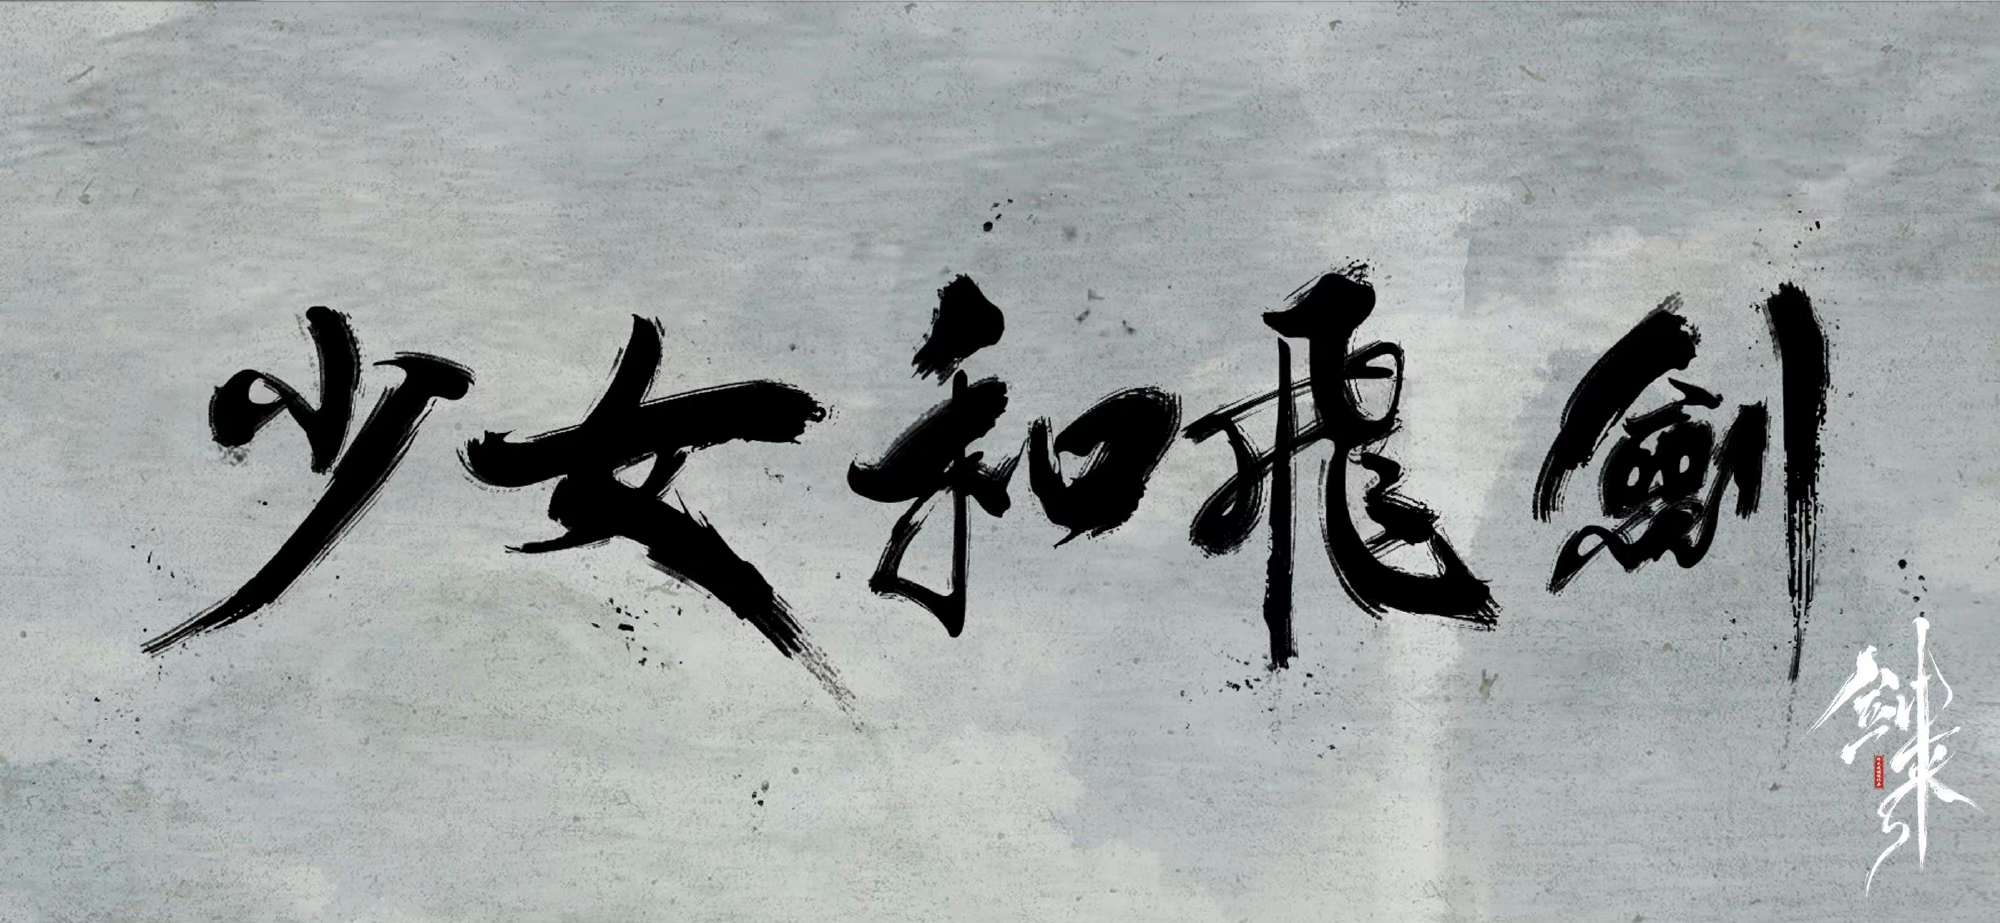 少女和飛劍
剑来